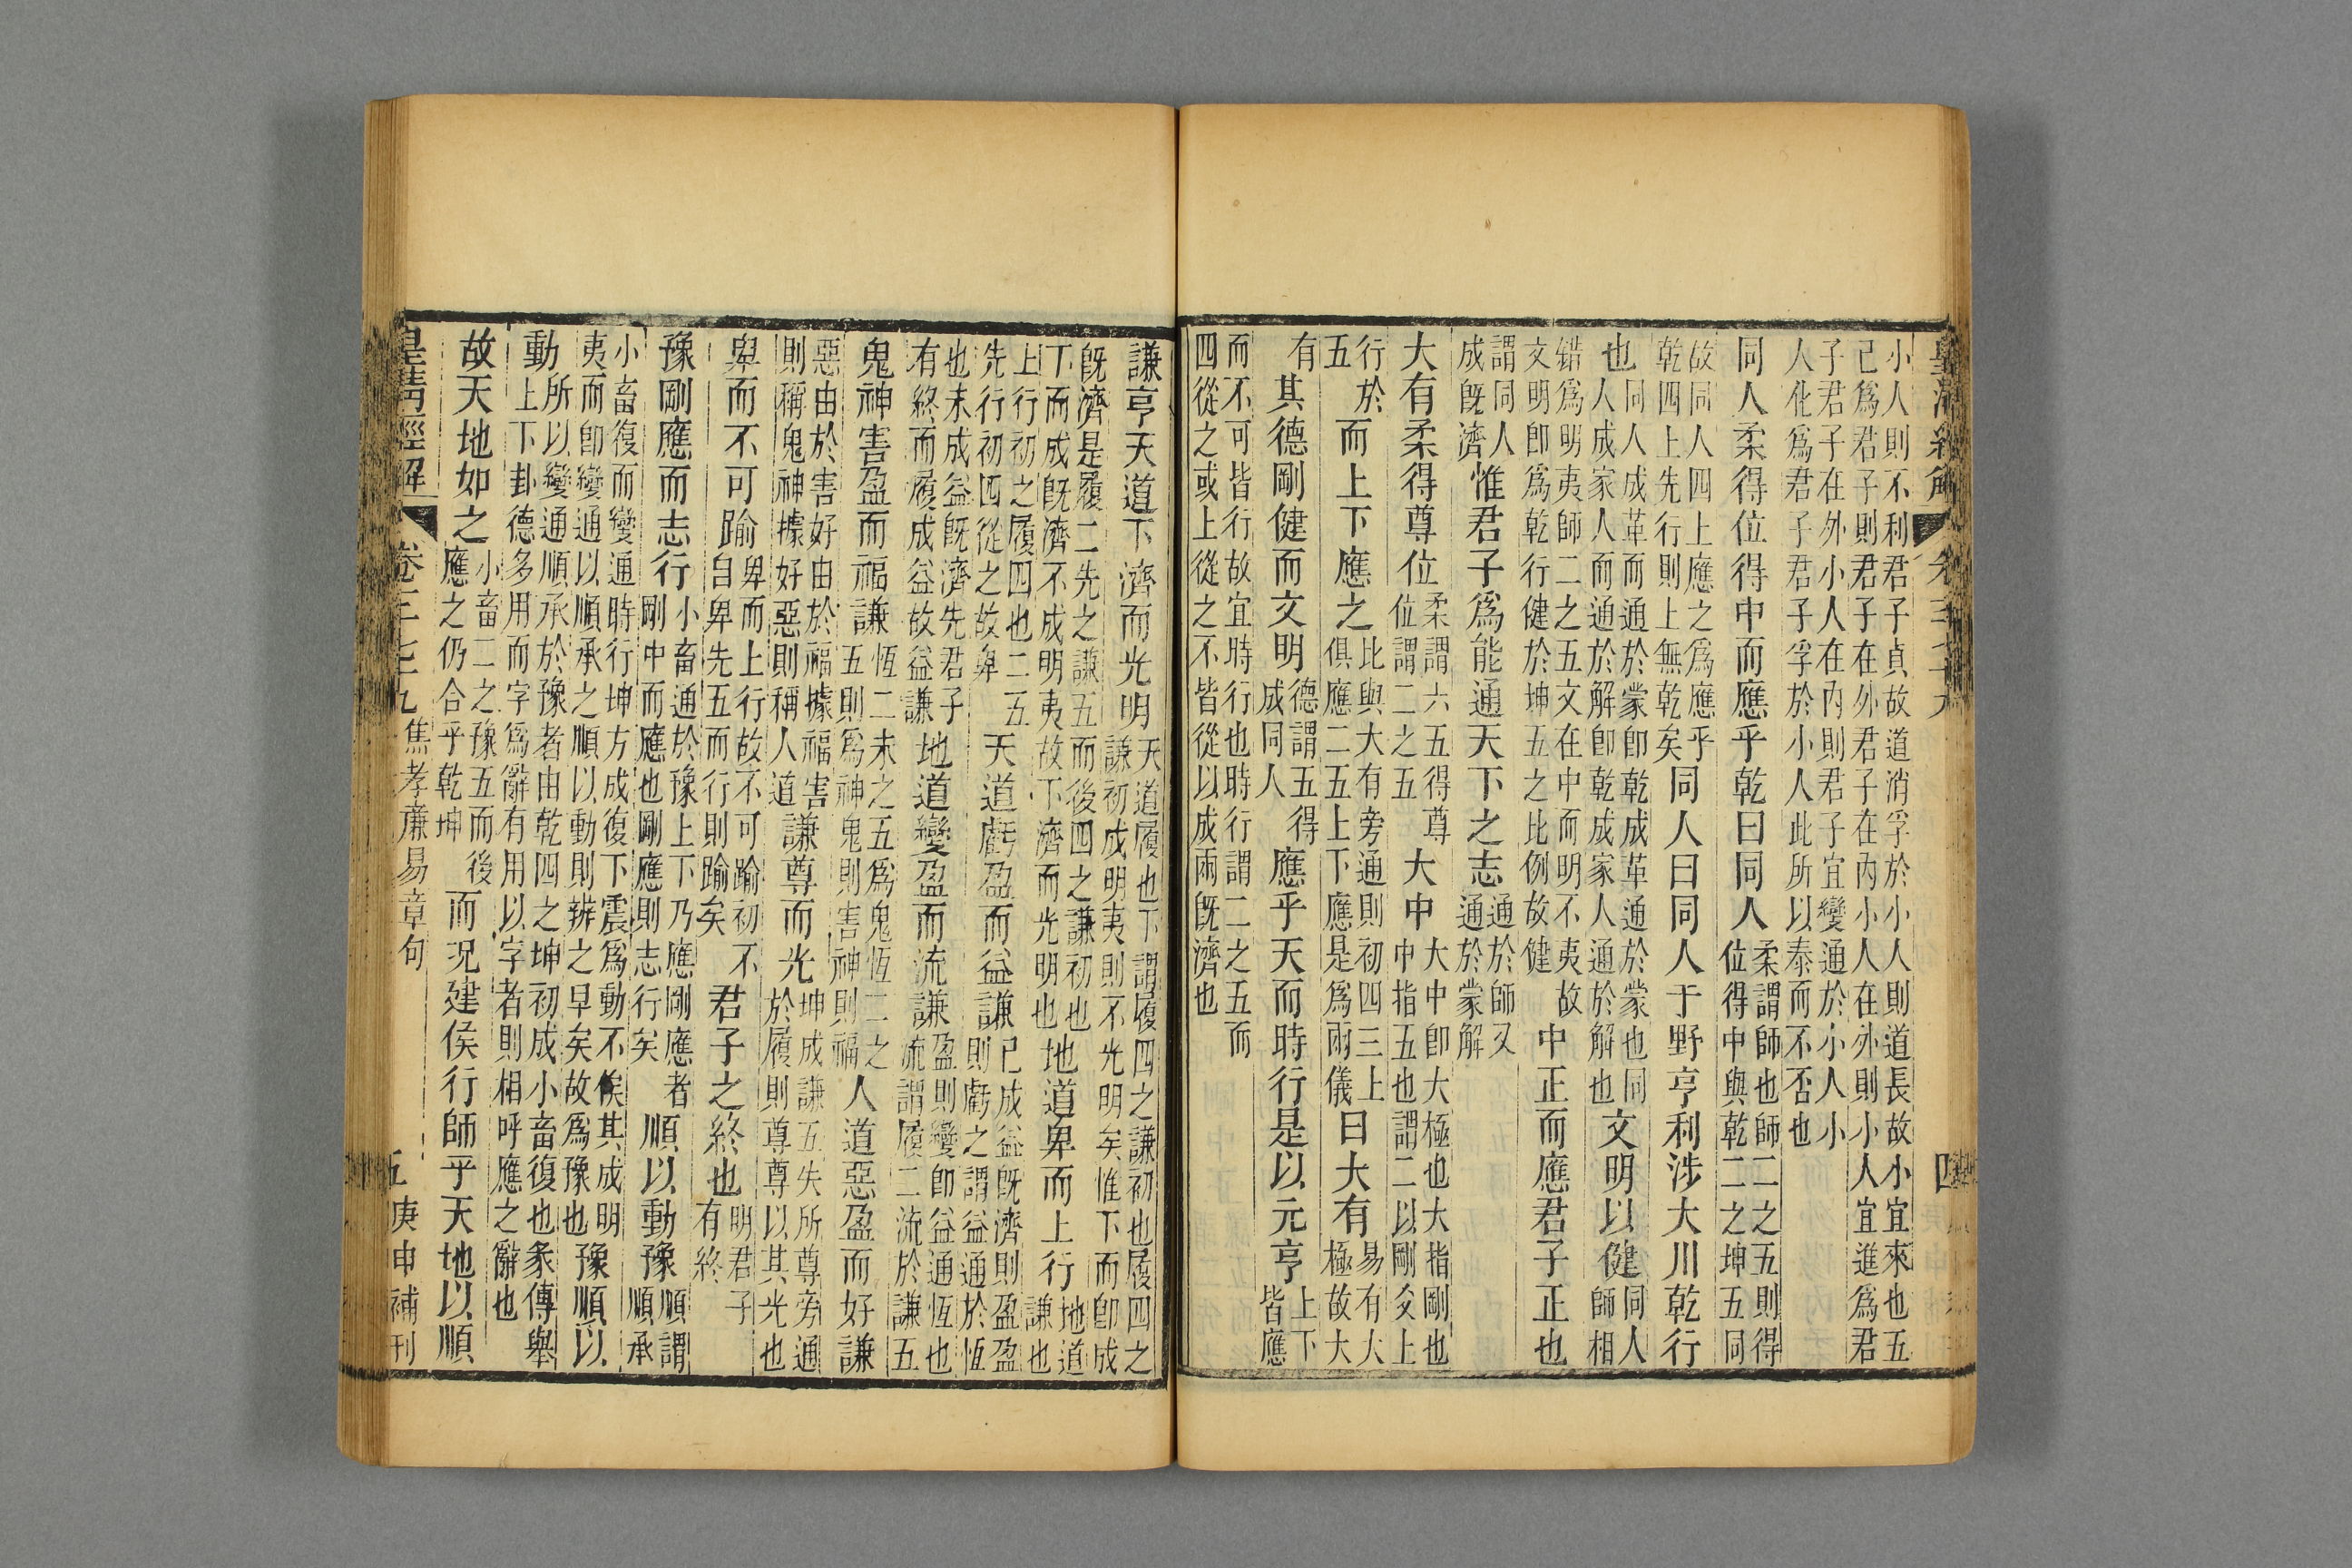 皇清經解 卷 四
小人則不利君子貞故道消孚於小人則道長故小宜來也五
已爲君子則君子在外君子在內小人在外則小人宜進爲君
子君子在外小人在內則君子宜變通於小人小
人化爲君子君子孚於小人此所以泰而不否也
同人柔得位得中而應乎乾曰同人柔謂師也師二之五則得位得中與乾二之坤五同
故同人四上應之爲應乎乾四上先行則上無乾矣同人曰同人于野亨利涉大川乾行
也同人成革而通於蒙卽乾成革通於蒙也同人成家人而通於解卽乾成家人通於解也文明以健同人師相
錯爲明夷師二之五文在中而明不夷故文明卽爲乾行健於坤五之比例故健中正而應君子正也
謂同人成旣濟惟君子爲能通天下之志通於師又通於蒙解
大有柔得尊位柔謂六五得尊位謂二之五大中大中卽大極也大指剛也中指五也謂二以剛爻上
行於五而上下應之比與大有旁通則初四三上俱應二五上下應是爲兩儀曰大有易有大極故大
有其德剛健而文明德謂五得成同人應乎天而時行是以元亨上下皆應
而不可皆行故宜時行也時行謂二之五而
四從之或上從之不皆從以成兩旣濟也
謙亨天道下濟而光明天道履也下謂履四之謙初也履四之謙初成明夷則不光明矣惟下而卽成
旣濟是履二先之謙五而後四之謙初也下而成旣濟不成明夷故下濟而光明也地道卑而上行地道謙也
上行初之履四也二五先行初四從之故卑天道虧盈而益謙已成益旣濟則盈盈則虧之謂益通於恆
也未成益旣濟先君子有終而履成益故益謙地道變盈而流謙盈則變卽益通恆也流謂履二流於謙五
鬼神害盈而福謙恆二未之五爲鬼恆二之五則爲神鬼則害神則福人道惡盈而好謙
惡由於害好由於福據福害則稱鬼神據好惡則稱人道謙尊而光坤成謙五失所尊旁通於履則尊尊以其光也
卑而不可踰卑而上行故不可踰初不自卑先五而行則踰矣君子之終也明君子有終
豫剛應而志行小畜通於豫上下乃應剛應者剛中而應也剛應則志行矣順以動豫順謂順承
小畜復而變通時行坤方成復下震爲動不俟其成明夷而卽變通以順承之順以動則辨之早矣故爲豫也豫順以
動所以變通順承於豫者由乾四之坤初成小畜復也彖傳舉上下卦德多用而字爲辭有用以字者則相呼應之辭也
故天地如之小畜二之豫五而後應之仍合乎乾坤而況建侯行師乎天地以順
皇清經解 卷三七十九 焦孝廉易章句 五 庚申補刊